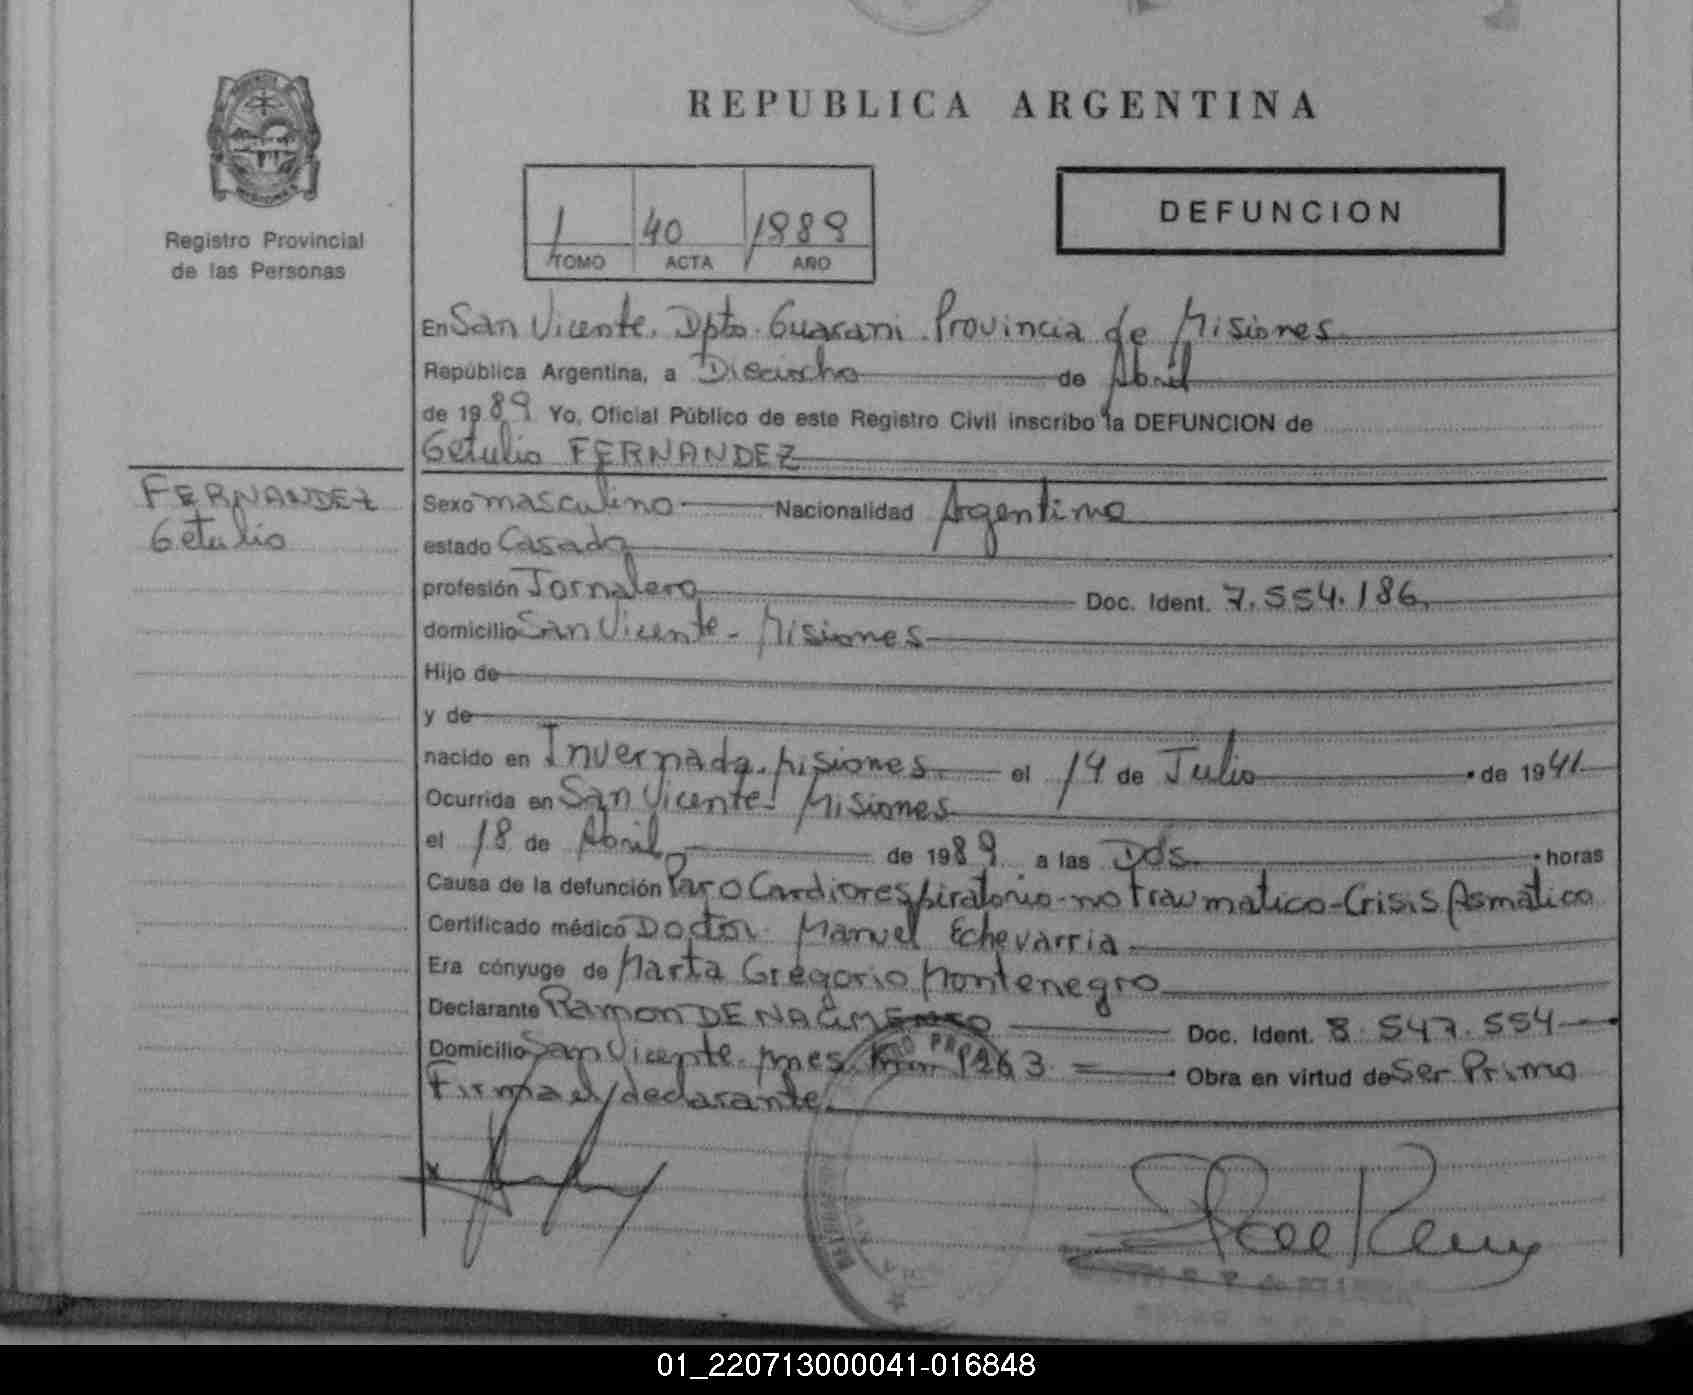 REPUBLICA ARGENTINA
Registro Provincial
de las Personas
1 40 1989
TOMO ACTA AÑO
DEFUNCION
En San Vicente. Dpto. Guarani. Provincia de Misiones
República Argentina, a Dieciocho de Abril
de 1989 Yo, Oficial Público de este Registro Civil inscribo la DEFUNCION de
Getulio FERNANDEZ
FERNANDEZ
Getulio
Sexo masculino Nacionalidad Argentina
estado Casado
profesión Jornalero Doc. Ident. 7.554.186
domicilio San Vicente - Misiones
Hijo de
y de
nacido en Invernada. Misiones el 14 de Julio de 1941
Ocurrida en San Vicente. Misiones
el 18 de Abril de 1989 a las Dos horas
Causa de la defunción Paro Cardiorespiratorio-no Traumatico-Crisis Asmatica
Certificado médico Doctor Manuel Echevarria
Era cónyuge de Marta Gregorio Montenegro
Declarante Ramon DE NACIMENTO Doc. Ident. 8.547.554
Domicilio San Vicente. Mnes. Km 1263 Obra en virtud de Ser Primo
Firma el declarante
01_220713000041-016848